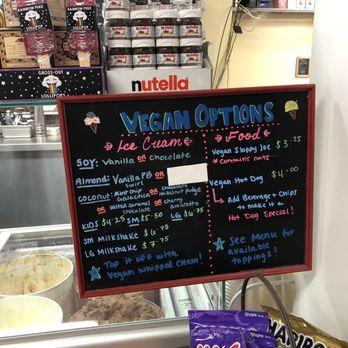 RAINBOW PIKE
GROSS-OUT
LOLLIPOP
nutella
VEGAN OPTIONS
Ice Cream
SOY: Vanilla OR chocolate
Almond: Vanilla PB OR
swirl
COCONUT: Mint chip OR chocolate
Galactica OR Hazelnut
OR salted caramel OR cherry
chocolate amaretto
KIDS $4.25 SM $5.50 LG $6.75
SM Milkshake $6.75
LG Milkshake $7.75
Top it off with
Vegan Whipped Cream!
Food
Vegan Sloppy Joe $3.25
* contains nuts
Vegan Hot Dog $4.00
Add Beverage + Chips
to make it a
Hot Dog Special!
See Menu for
available
toppings!
Share
Share
HARIBO